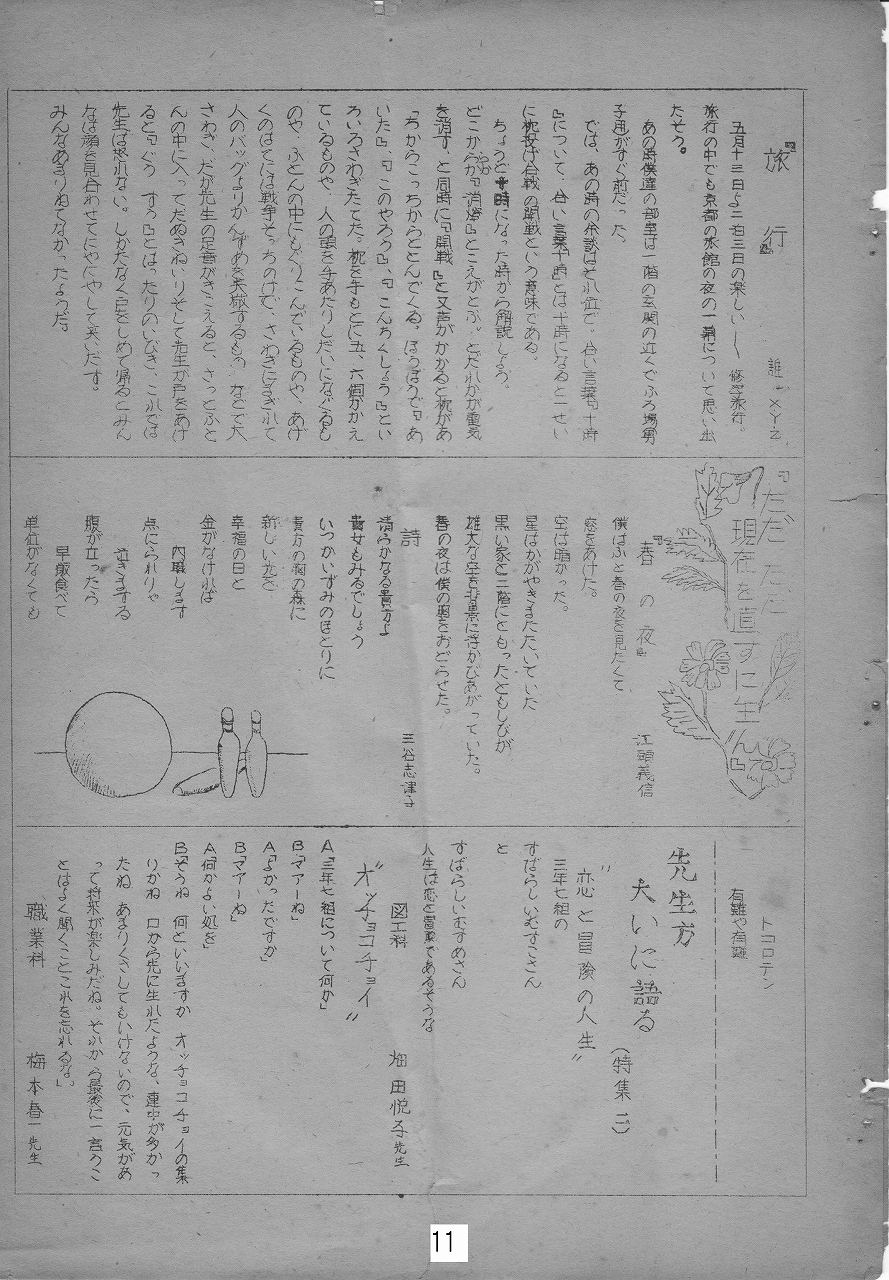 『旅行』
誰一XY・Z
五月十三日より二泊三日の楽しい―修学旅行。
旅行の中でも京都の旅館の夜の一幕について思い出
たそう。
あの時僕達の部室は一階の玄関の近くでふろ場男
子用がすぐ前だった。
では、あの時の余談はそれ位で。合い言葉『十時
』について、合い言葉『十時』とは十時になると一せい
に枕投げ合戦の開戦という意味である。
ちょうど十時になった時から解説しよう。
どこからか『消燈』とこえがとぶ。とだれかが電気
を消す、と同時に『開戦』と又声がかかると枕があ
ちからこっちからととんでくる。ほうぼうで『あ
いた』、『このやろう』、『こんちくしょう』とい
ろいろさわぎたてた。枕を手もとに五、六個かかえ
ているものや、人の頭を手あたりしだいになぐるも
のや、ふとんの中にもぐりこんでいるものや、あげ
くのはてには戦争そっちのけで、さわぎにまぎれて
人のバッグよりかんずめを失敬するもの、などで大
さわぎ、だが先生の足音がきこえると、さっとふと
んの中に入ってたぬきねいりそして先生が戸をあけ
ると『ぐう すう』とはったりのいびき、これでは
先生は怒れない。しかたなく戸をしめて帰るとみん
なは顔を見合わせてにやにやして笑いだす。
みんなあまりねてなかったようだ。
『ただ ただ
現在を直すに生
ん』
『春の夜』
江頭義信
僕はふと春の夜を見たくて
窓をあけた。
空は暗かった。
星はかがやきまたたいていた
黒い家と二階にともったともしびが
雄大な空を背景に浮かびあがっていた。
春の夜は僕の胸をおどらせた。
詩
三谷志津子
清らかなる貴方よ
貴女もみるでしょう
いつかいずみのほとりに
貴方の胸の森に
新しい光を
幸福の日と
金がなければ
内職します
点にられりゃ
泣きまする
腹が立ったら
早飯食べて
単位がなくても
有難や有難
トコロテン
先生方
大いに語る
(特集二)
“恋と冒険の人生”
三年七組の
すばらしいむすこさん
と
すばらしいむすめさん
人生は恋と冒険であるそうな
図工科 畑田悦子先生
“オッチョコチョイ”
A「三年七組について何か」
B「マアーね」
A「よかったですか」
B「マアーね」
A「何かよい処を」
B「そうね 何といいますか オッチョコチョイの集
りかね 口から先に生れたような、連中が多かっ
たね あまりくさしてもいけないので、元気があ
って将来が楽しみだね。それから最後に一言うこ
とはよく聞くことこれを忘れるな」。
職業科 梅本春一先生
11